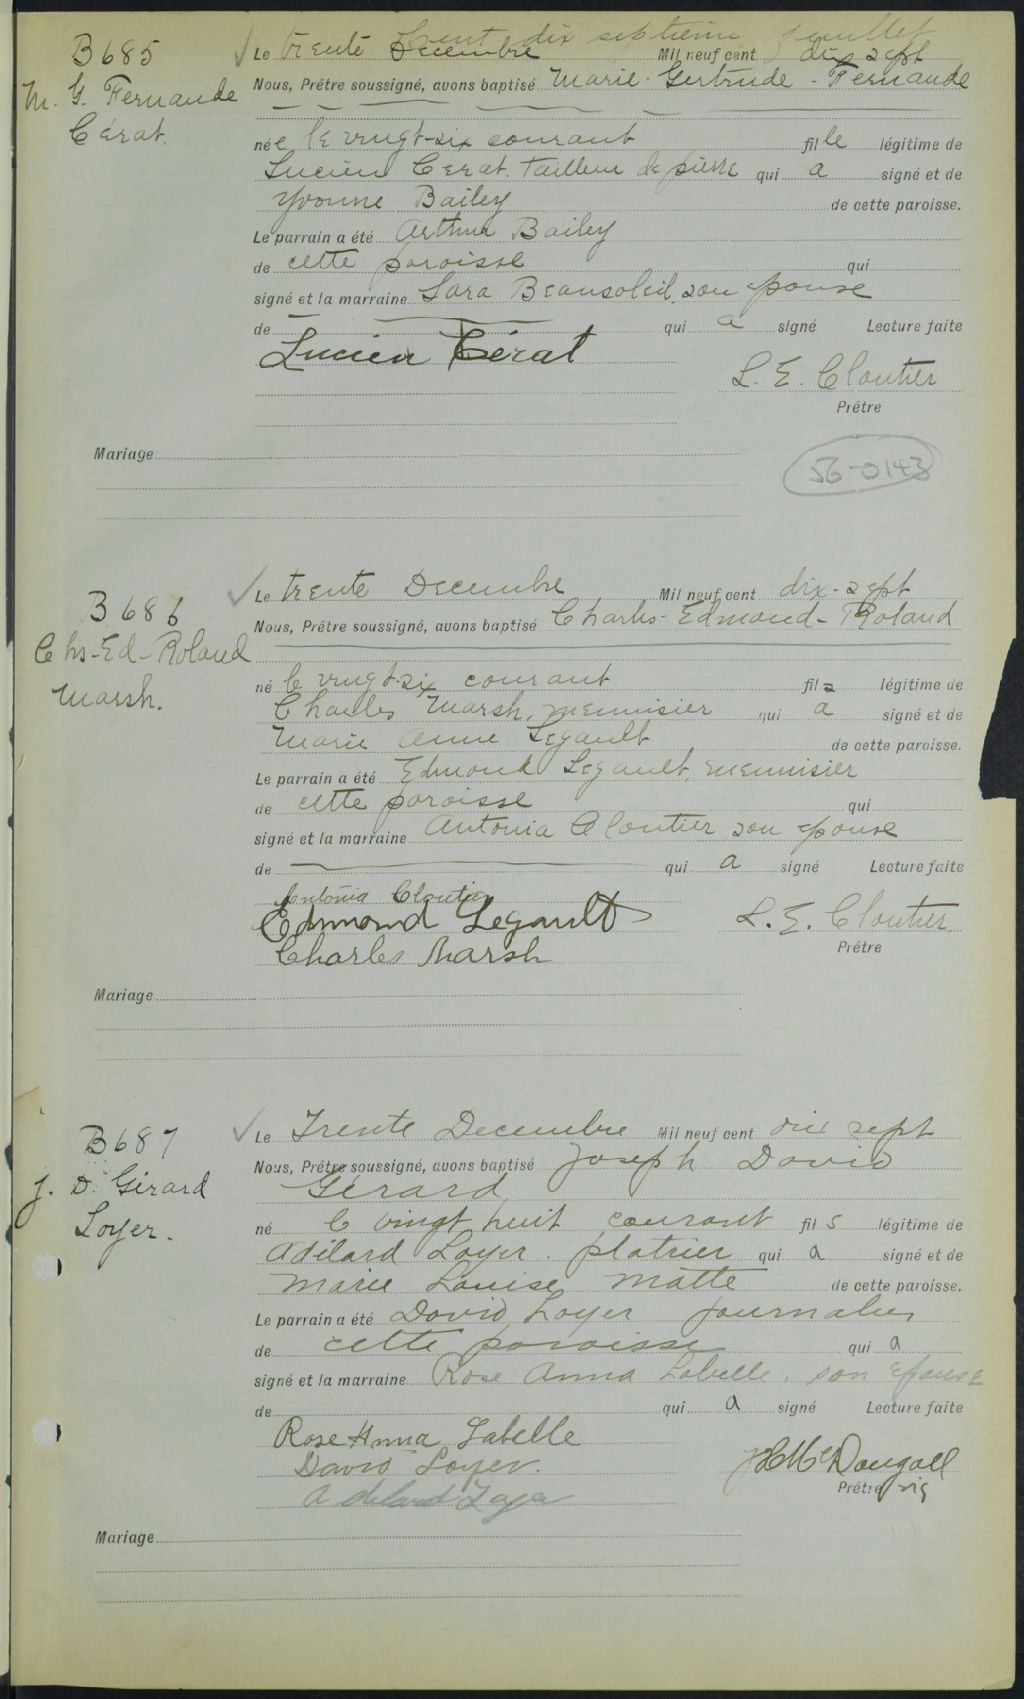 Cent dix septième feuillet
B 685
Le trente Decembre Mil neuf cent dix sept
M. G. Fernande
Cérat.
Nous, Prêtre soussigné, avons baptisé Marie-Gertrude-Fernande
née le vingt-six courant fille légitime de
Lucien Cerat. tailleur de pierre qui a signé et de
Yvonne Bailey de cette paroisse.
Le parrain a été Arthur Bailey
de cette paroisse qui
signé et la marraine Sara Beausoleil son epouse
de qui a signé Lecture faite
Lucien Cérat
L. E. Cloutier
Prêtre
Mariage
56-0143
B 686
Le trente Decembre Mil neuf cent dix-sept
Chs-Ed-Roland
Marsh.
Nous, Prêtre soussigné, avons baptisé Charles-Edmond-Roland
né le vingt-six courant fils légitime de
Charles Marsh, menuisier qui a signé et de
Marie Anne Legault de cette paroisse.
Le parrain a été Edmond Legault, menuisier
de cette paroisse qui
signé et la marraine Antonia Cloutier son epouse
de qui a signé Lecture faite
Antonia Cloutier
Edmond Legault
L. E. Cloutier
Charles Marsh
Prêtre
Mariage
B 687
Le Trente Decembre Mil neuf cent dix sept
J. D. Gérard
Loyer.
Nous, Prêtre soussigné, avons baptisé Joseph David
Gérard
né le vingt huit courant fils légitime de
Adélard Loyer. platrier qui a signé et de
Marie Louise Matte de cette paroisse.
Le parrain a été David Loyer journalier
de cette paroisse qui a
signé et la marraine Rose Anna Labelle. son Epouse
de qui a signé Lecture faite
Rose Anna Labelle
David Loyer.
Adelard Loyer
McDougall
Prêtre vic
Mariage